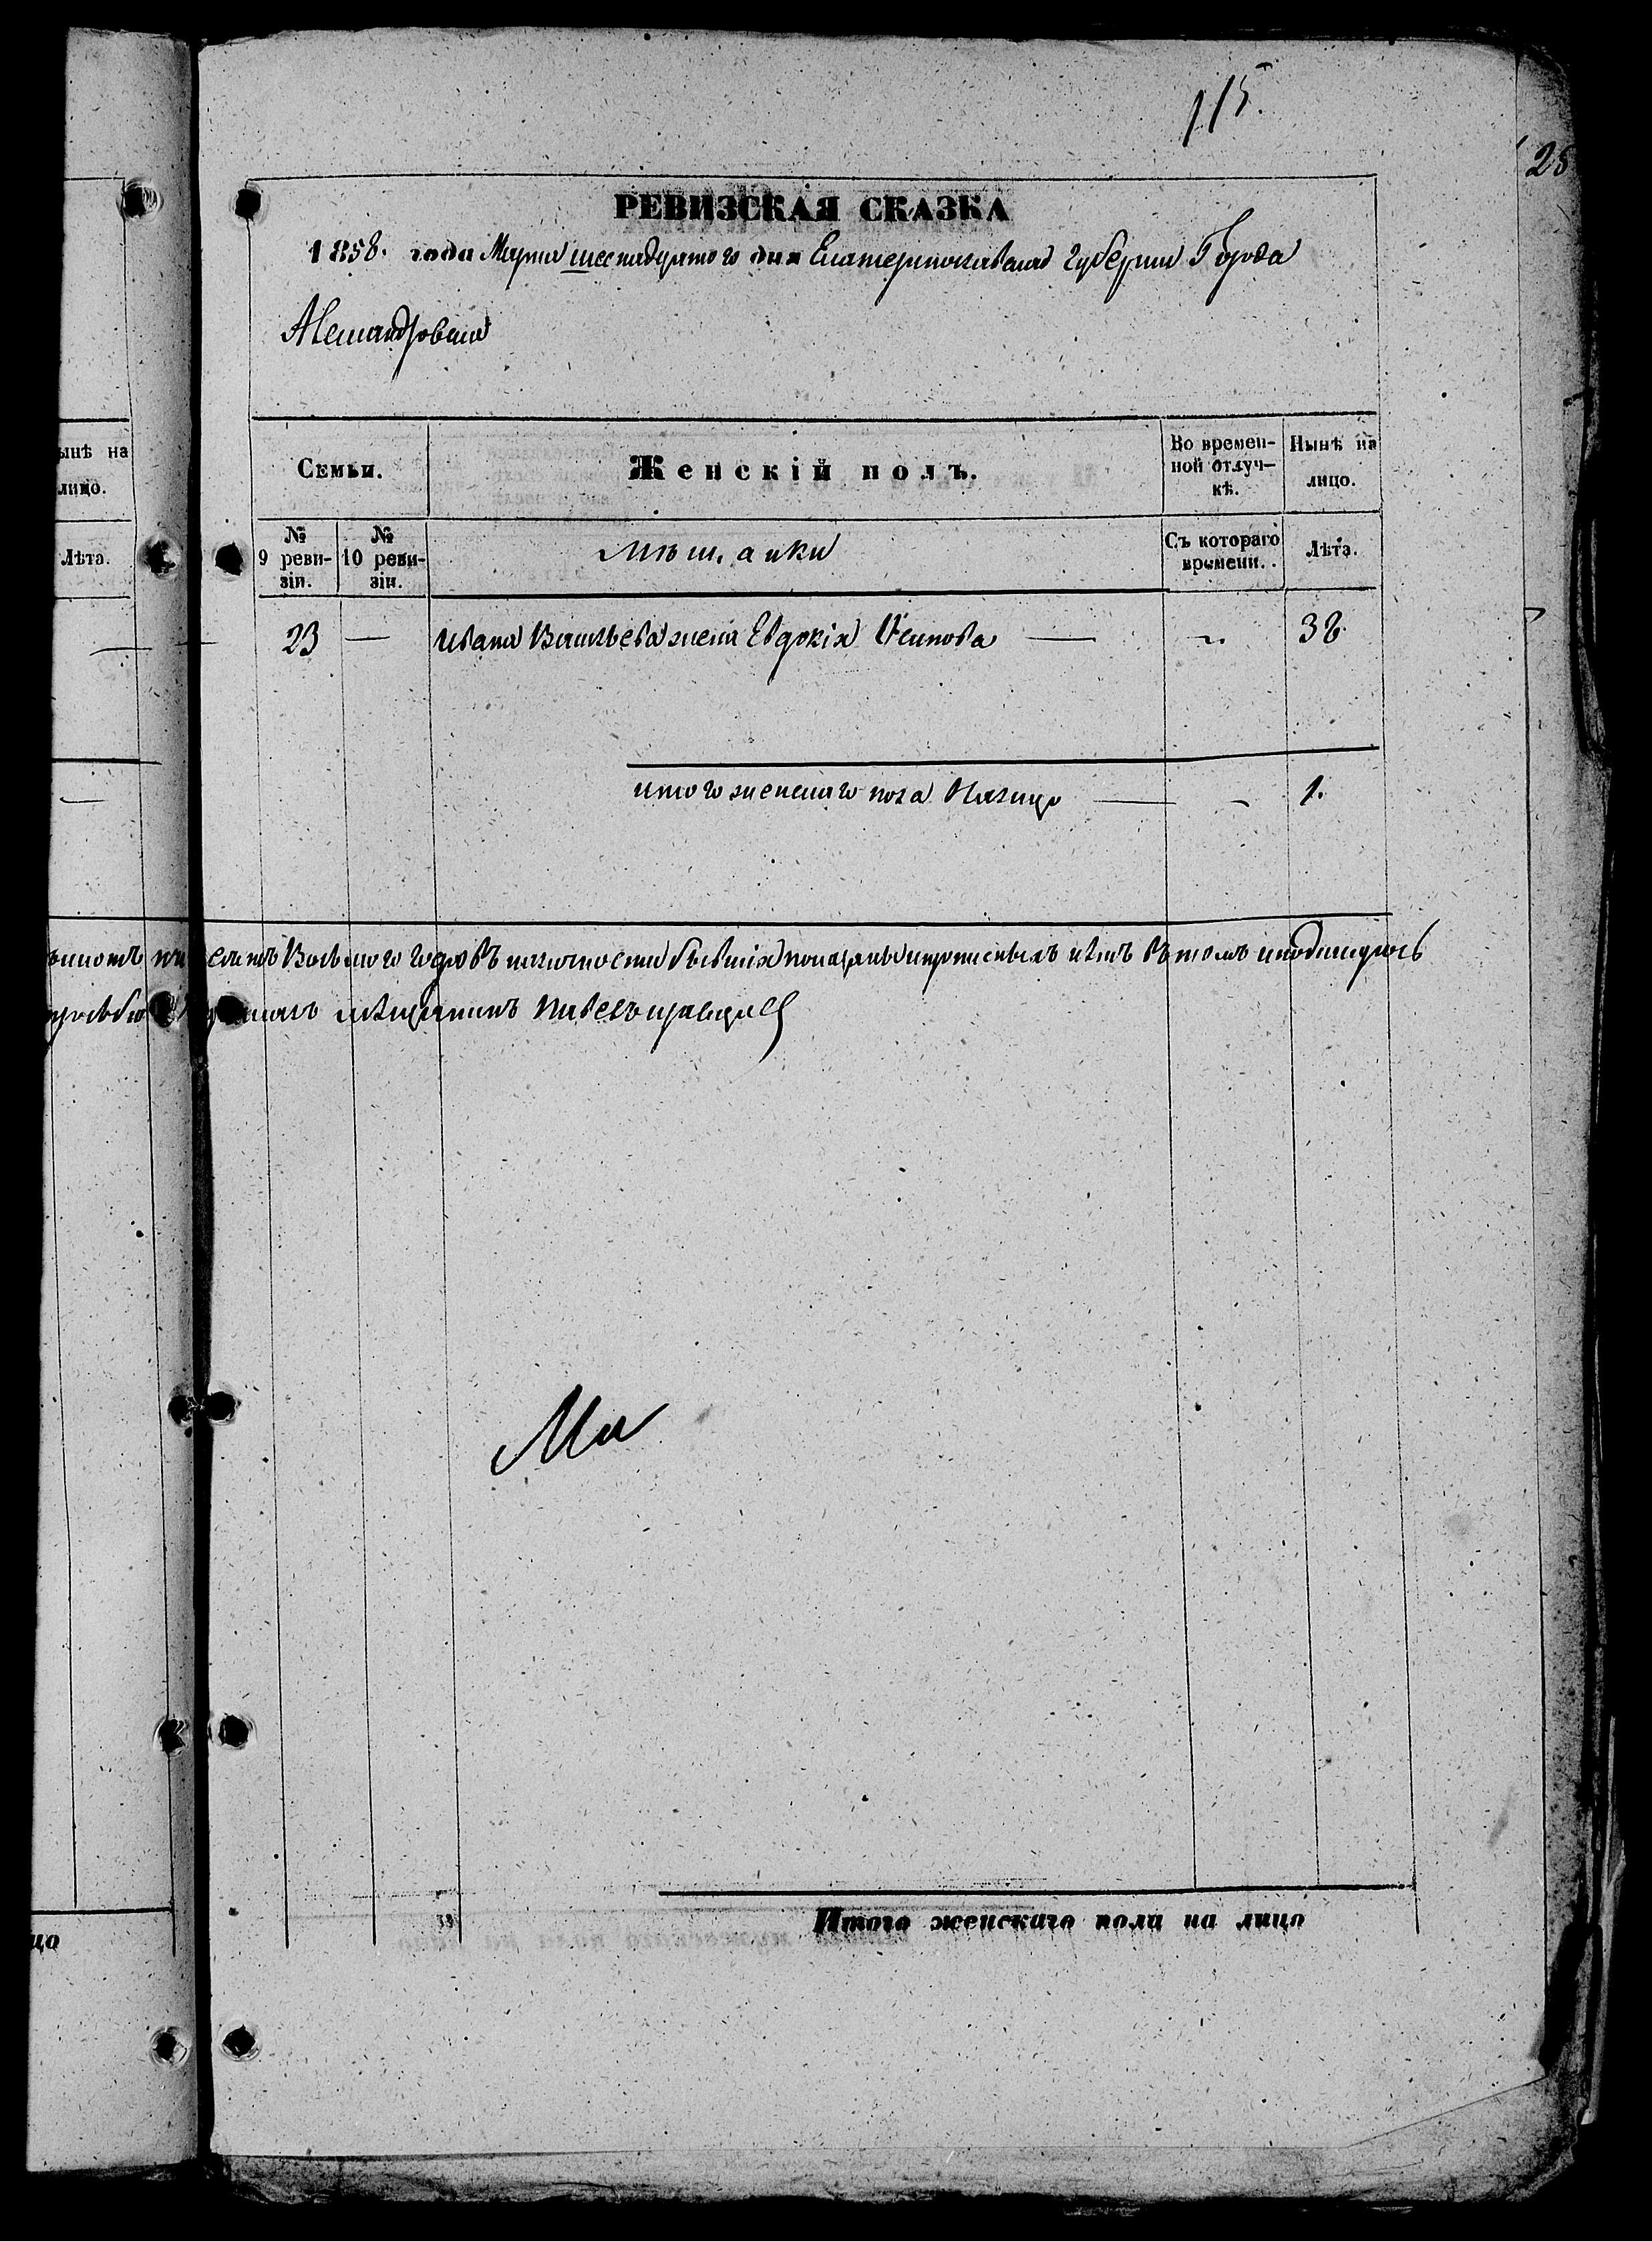 115.
25
РЕВИЗСКАЯ СКАЗКА
1858. года Марта шеснадцатого дня Екатеринославской Губернии Города
Александровска
ынѣ на
лицо.
Лѣта.
Семьи.
Женскій полъ.
Во времен-
ной отлуч-
кѣ.
Нынѣ на
лицо.
№
9 реви-
зіи.
№
10 реви-
зіи.
Мѣщанки
Съ котораго
времени.
Лѣта.
23 — Ивана Васильева жена Евдокія Осипова — 38.
итого женскаго пола Налицо — 1.
годовъ бывшія прописныхъ нѣтъ въ томъ и подпищуюсь
мѣщанинъ Павелъ
Ми
Итого женскаго пола на лицо
цо